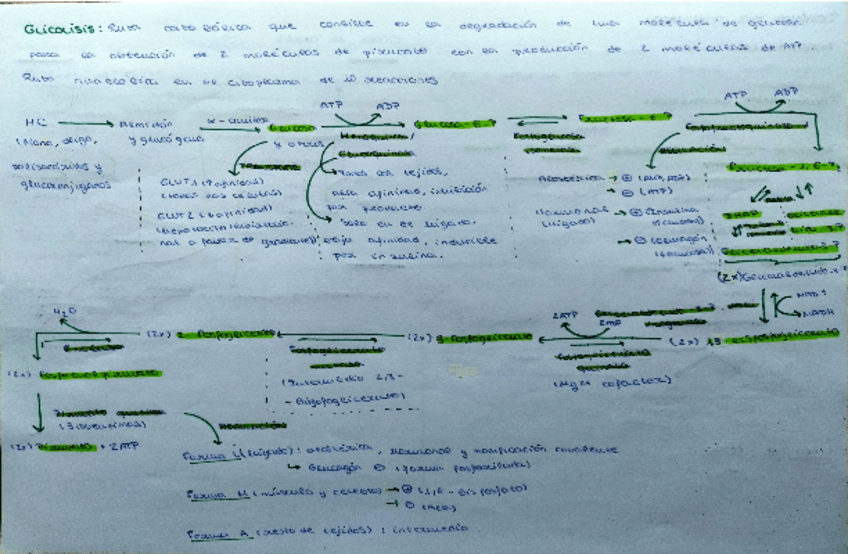 GLICOLISIS: Ruta catabólica que consiste en la degradación de una molécula de glucosa
para la obtención de 2 moléculas de piruvato con la producción de 2 moléculas de ATP.
Ruta anaeróbica en el citoplasma de 10 reacciones
HC → Almidón y glucógeno
α-amilasa
Glucosa y otras
ATP ADP
Hexoquinasa/
Glucoquinasa
Glucosa-6-P
Fosfoglucosa isomerasa
Fructosa-6-P
ATP ADP
Fosfofructoquinasa
Regulación
Fructosa-1,6-P
(Mono, oligo,
polisacáridos y
glucoconjugados
GLUT1 (↑afinidad)
(todas las células)
GLUT2 (↓afinidad)
Todos los tejidos,
alta afinidad, inhibición
por producto
Sólo en el hígado,
baja afinidad, inducible
por insulina.
Alostérica → ⊕
→ ⊖ (ATP)
Hormonas → ⊕ (Insulina
(hígado)
→ ⊖ (Glucagón
DHAP
(2x)
NAD+
NADH
(2x) 1,3 Bisfosfoglicerato
2ATP 2ADP
Fosfoglicerato quinasa
(Mg2+ cofactor)
(2x) 3 Fosfoglicerato
Fosfoglicerato mutasa
(Intermedio 2,3-
-Bisfosfoglicerato)
(2x) 2 Fosfoglicerato
H2O
Enolasa
(2x) Fosfoenolpiruvato
Piruvato quinasa
(3 isoenzimas)
(2x) Piruvato + 2ATP
Regulación
Forma L (hígado): alostérica, hormonal y modificación covalente
↳ Glucagón ⊖ (forma fosforilada)
Forma M (músculo y cerebro) → ⊕ (1,6-Bisfosfato)
→ ⊖ (Ala)
Forma A (resto de tejidos): intermedia